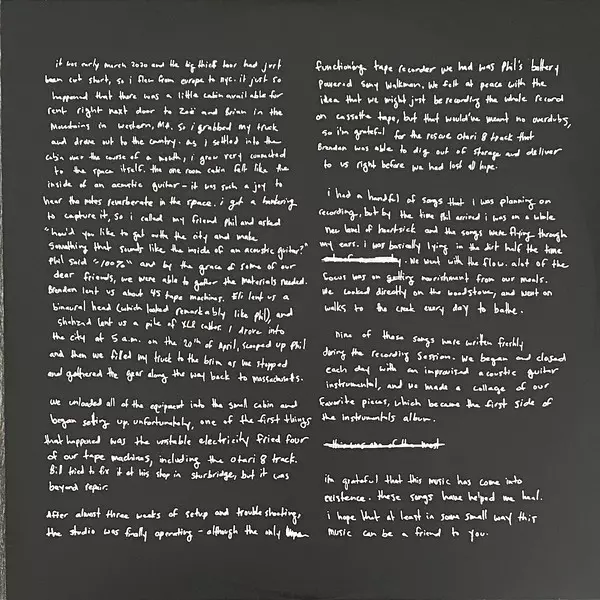 it was early march 2020 and the big thief tour had just
been cut short, so i flew from europe to nyc. it just so
happened that there was a little cabin available for
rent right next door to Zoë and Brian in the
mountains in western, MA. so i grabbed my truck
and drove out to the country. As i settled into the
cabin over the course of a month, i grew very connected
to the space itself. the one room cabin felt like the
inside of an acoustic guitar - it was such a joy to
hear the notes reverberate in the space. i got a hankering
to capture it, so i called my friend Phil and asked
"how'd you like to get outta the city and make
something that sounds like the inside of an acoustic guitar?"
Phil said "100%" and by the grace of some of our
dear friends, we were able to gather the materials needed.
Brendan lent us about 45 tape machines. Eli lent us a
binaural head (which looked remarkably like Phil), and
shahzad lent us a pile of XLR cables. I drove into
the city at 5 a.m. on the 20th of April, scooped up Phil
and then we filled my truck to the brim as we stopped
and gathered the gear along the way back to massachusetts.
we unloaded all of the equipment into the small cabin and
began setting up. unfortunately, one of the first things
that happened was the unstable electricity fried four
of our tape machines, including the otari 8 track.
Bill tried to fix it at his shop in sturbridge, but it was
beyond repair.
After almost three weeks of setup and troubleshooting,
the studio was finally operating - although the only
functioning tape recorder we had was Phil's battery
powered Sony Walkman. We felt at peace with the
idea that we might just be recording the whole record
on cassette tape, but that would've meant no overdubs,
so i'm grateful for the rescue otari 8 track that
Brendan was able to dig out of storage and deliver
to us right before we had lost all hope.
i had a handful of songs that i was planning on
recording, but by the time Phil arrived i was on a whole
new level of heartsick and the songs were flying through
my ears. i was basically lying in the dirt half the time
. We went with the flow. alot of the
focus was on getting nourishment from our meals.
We cooked directly on the woodstove, and went on
walks to the creek every day to bathe.
Nine of these songs were written freshly
during the recording session. We began and closed
each day with an improvised acoustic guitar
instrumental, and we made a collage of our
favorite pieces, which became the first side of
the instrumentals album.
this was one of the most
im grateful that this music has come into
existence. these songs have helped me heal.
i hope that at least in some small way this
music can be a friend to you.